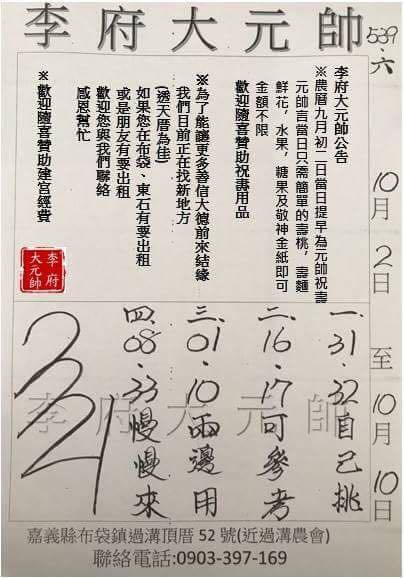 李府大元帥
539.六
10月2日至10月10日
李府大元帥公告
※農曆九月初二日當日提早為元帥祝壽
元帥言當日只需簡單的壽桃，壽麵
鮮花，水果，糖果及敬神金紙即可
金額不限
歡迎隨喜贊助祝壽用品
※為了能讓更多善信大德前來結緣
我們目前正在找新地方
(透天厝為佳)
如果您在布袋、東石有要出租
或是朋友有要出租
歡迎您與我們聯絡
感恩幫忙
※歡迎隨喜贊助建宮經費
李府大元帥
一.31.32自己挑
二.16.17可參考
三.01.10兩邊用
四.08.33慢慢來
李府大元帥
嘉義縣布袋鎮過溝頂厝 52 號(近過溝農會)
聯絡電話:0903-397-169